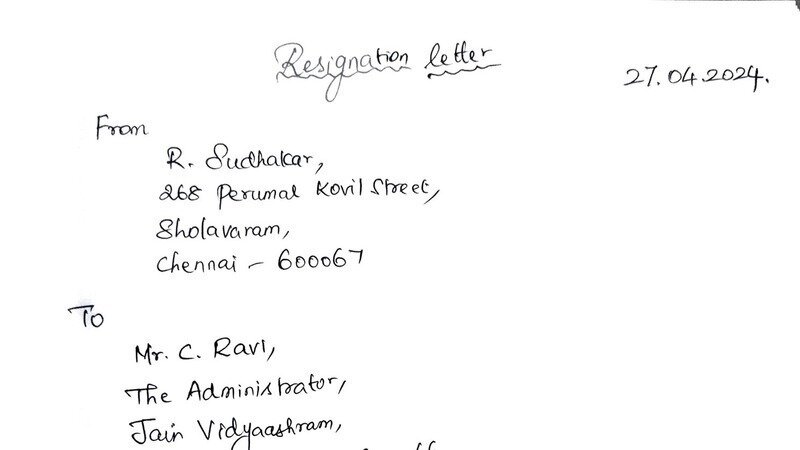 Resignation letter
27.04.2024.
From
R. Sudhakar,
268 Perumal Kovil Street,
Sholavaram,
Chennai - 600067
To
Mr. C. Ravi,
The Administrator,
Jain Vidyaashram,